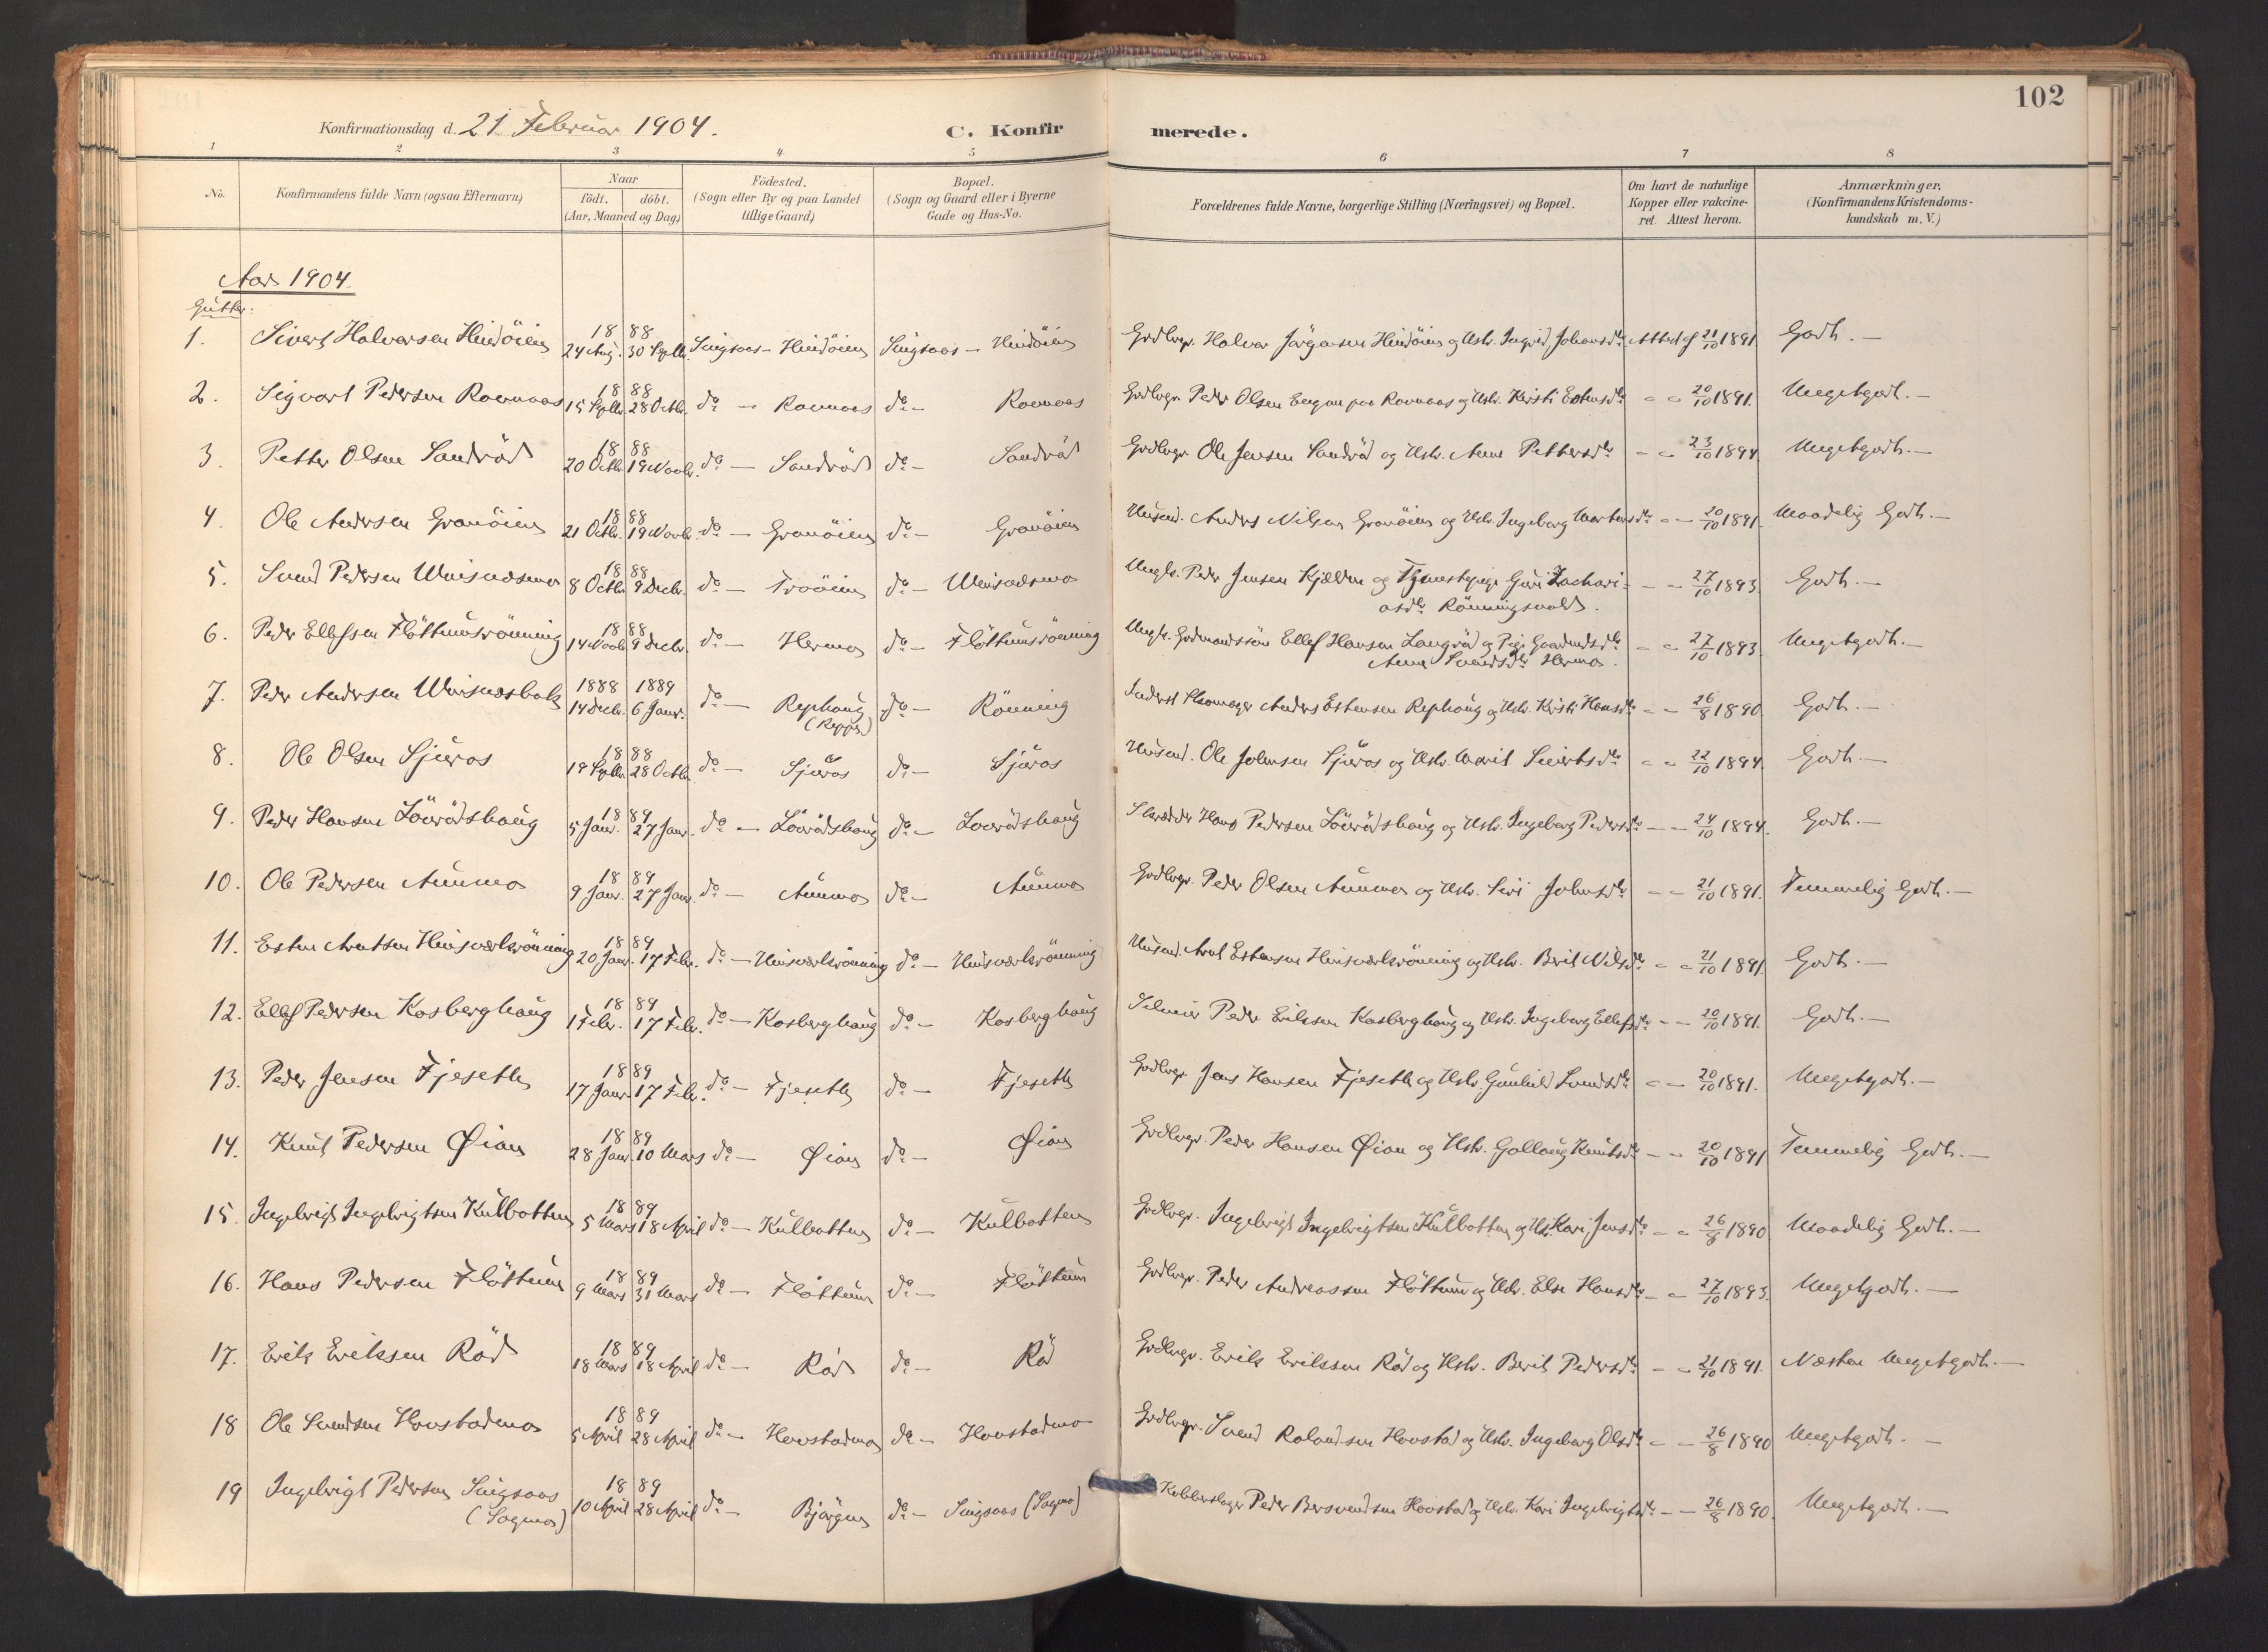 102
Konfirmationsdag d. 21 Februar 1904.
C. Konfirmerede.
1 2 3 4 5 6 7 8
No. Konfirmandens fulde Navn (ogsaa Efternavn)
Naar födt. döbt. (Aar, Maaned og Dag)
Födested. (Sogn eller By og paa Landet tillige Gaard)
Bopæl. (Sogn og Gaard eller i Byerne Gade og Hus-No.
Forældrenes fulde Navne, borgerlige Stilling (Næringsvei) og Bopæl.
Om havt de naturlige Kopper eller vakcineret. Attest herom.
Anmærkninger, (Konfirmandens Kristendomskundskab m. V.)
Aar 1904.
Gutter:
1. Sivert Halvorsen Hindöien 1888 24 Aug. 30 Septbr. Singsaas - Hindöien Singsaas - Hindöien Grdbrgr. Halvor Jörgensen Hindöien og Hstr. Ingrid Johansdtr. Attest af 21/10 1891. Godt. -
2. Sigvart Pedersen Ravnaas 1888 15 Septbr. 28 Octbr. do - Ravnaas do - Ravnaas Grdbrgr. Peder Olsen Engan paa Ravnaas og Hstr. Kirsti Estensdtr. - - 20/10 1891. Megetgodt. -
3. Petter Olsen Sandröd 1888 20 Octbr. 19 Novbr. do - Sandröd do - Sandröd Grdbrgr Ole Jensen Sandröd og Hstr. Anne Pettersdtr. - - 23/10 1894 Megetgodt. -
4. Ole Andersen Granöien 1888 21 Octbr. 19 Novbr. do - Granöien do - Granöien Husmd. Anders Nilsen Granöien og Hstr. Ingeborg Martensdtr. - - 20/10 1891. Maadelig Godt. -
5. Svend Pedersen 1888 8 Octbr. 9 Decbr. do - Troöien do - Ungk. Peder Jensen Kjælden og Tjenestepige Guri Zachari=
asdtr. Rönningsvold. - - 27/10 1893. Godt. -
6. Peder Ellefsen Flöttumsrönning 1888 14 Novbr. 9 Decbr. do - Hermo do - Flöttumsrönning Ungk. Grdmandssön Ellef Hansen Langröd og Pige Gaardmdsdtr.
Anne Svendsdtr Hermo. - - 27/10 1893 Megetgodt. -
7. Peder Andersen 1888 1889 14 Decbr. 6 Janr. do - Rephaug (Reppe) do - Rönning Inderst Skomager Anders Estensen Rephaug og Hstr. Kirsti Hansdtr. - - 26/8 1890. Godt. -
8. Ole Olsen Sjüros 1888 19 Septbr. 28 Octbr. do - Sjüros do - Sjüros Husmd. Ole Johnsen Sjüros og Hstr. Marit Sivertsdtr. - - 22/10 1894. Godt. -
9. Peder Hansen Lövrödshaug 1889 5 Janr. 27 Janr. do - Lövrödshaug do - Lovrödshaug Skrædder Hans Pedersen Lövrödshaug og Hstr. Ingeborg Pedersdtr. - - 24/10 1894. Godt. -
10. Ole Pedersen Aunmo 1889 9 Janr. 27 Janr. do - Aunmo do - Aunmo Grdbrgr. Peder Olsen Aunmo og Hstr. Siri Johnsdtr. - - 21/10 1891. Temmelig Godt. -
11. Esten Arntsen Hinsværksrönning 1889 20 Janr. 17 Febr. do - Hinsværksrönning do - Hinsværksrönning Husmd. Arnt Estensen Hinsværksrönning og Hstr. Berit Nilsdtr. - - 21/10 1891. Godt. -
12. Ellef Pedersen Kosberghaug 1889 1 Febr. 17 Febr. do - Kosberghaug do - Kosberghaug Selveier Peder Eriksen Kosberghaug og Hstr. Ingeborg Ellefsdtr. - - 20/10 1891. Godt. -
13. Peder Jensen Fjeseth 1889 17 Janr. 17 Febr. do - Fjeseth do - Fjeseth Grdbrgr. Jens Hansen Fjeseth og Hstr. Gunhild Svendsdtr. - - 20/10 1891. Megetgodt. -
14. Knut Pedersen Øian 1889 28 Janr. 10 Mars do - Øian do - Øian Grdbrgr. Peder Hansen Øian og Hstr. Gollaug Knutsdtr. - - 20/10 1891 Temmelig Godt. -
15. Ingebrigt Ingebrigtsen Kulbotten 1889 5 Mars 18 April do - Kulbotten do - Kulbotten Grdbrgr. Ingebrigt Ingebrigtsen Kulbotten og Hstr. Kari Jensdtr. - - 26/8 1890 Maadelig Godt. -
16. Hans Pedersen Flöttum 1889 9 Mars 31 Mars do - Flöttum do - Flöttum Grdbrgr. Peder Andreassen Flöttum og Hstr. Else Hansdtr. - - 27/10 1893. Megetgodt. -
17. Erik Eriksen Röd 1889 18 Mars 18 April do - Röd do - Röd Grdbrgr. Erik Eriksen Röd og Hstr. Berit Pedersdtr. - - 21/10 1891. Næsten Megetgodt. -
18 Ole Svendsen Hovstadmo 1889 5 April 28 April do - Hovstadmo do - Hovstadmo Grdbrgr. Svend Roland­sen Hovstad og Hstr. Ingeborg Olsdtr. - - 26/8 1890 Megetgodt. -
19 Ingebrigt Pedersen Singsaas (Sagmo) 1889 10 April 28 April do - Björgen do - Singsaas (Sagmo) Kobberslager Peder Bersvendsen Hovstad og Hstr. Kari Ingebrigtsdtr. - - 26/8 1890. Megetgodt. -